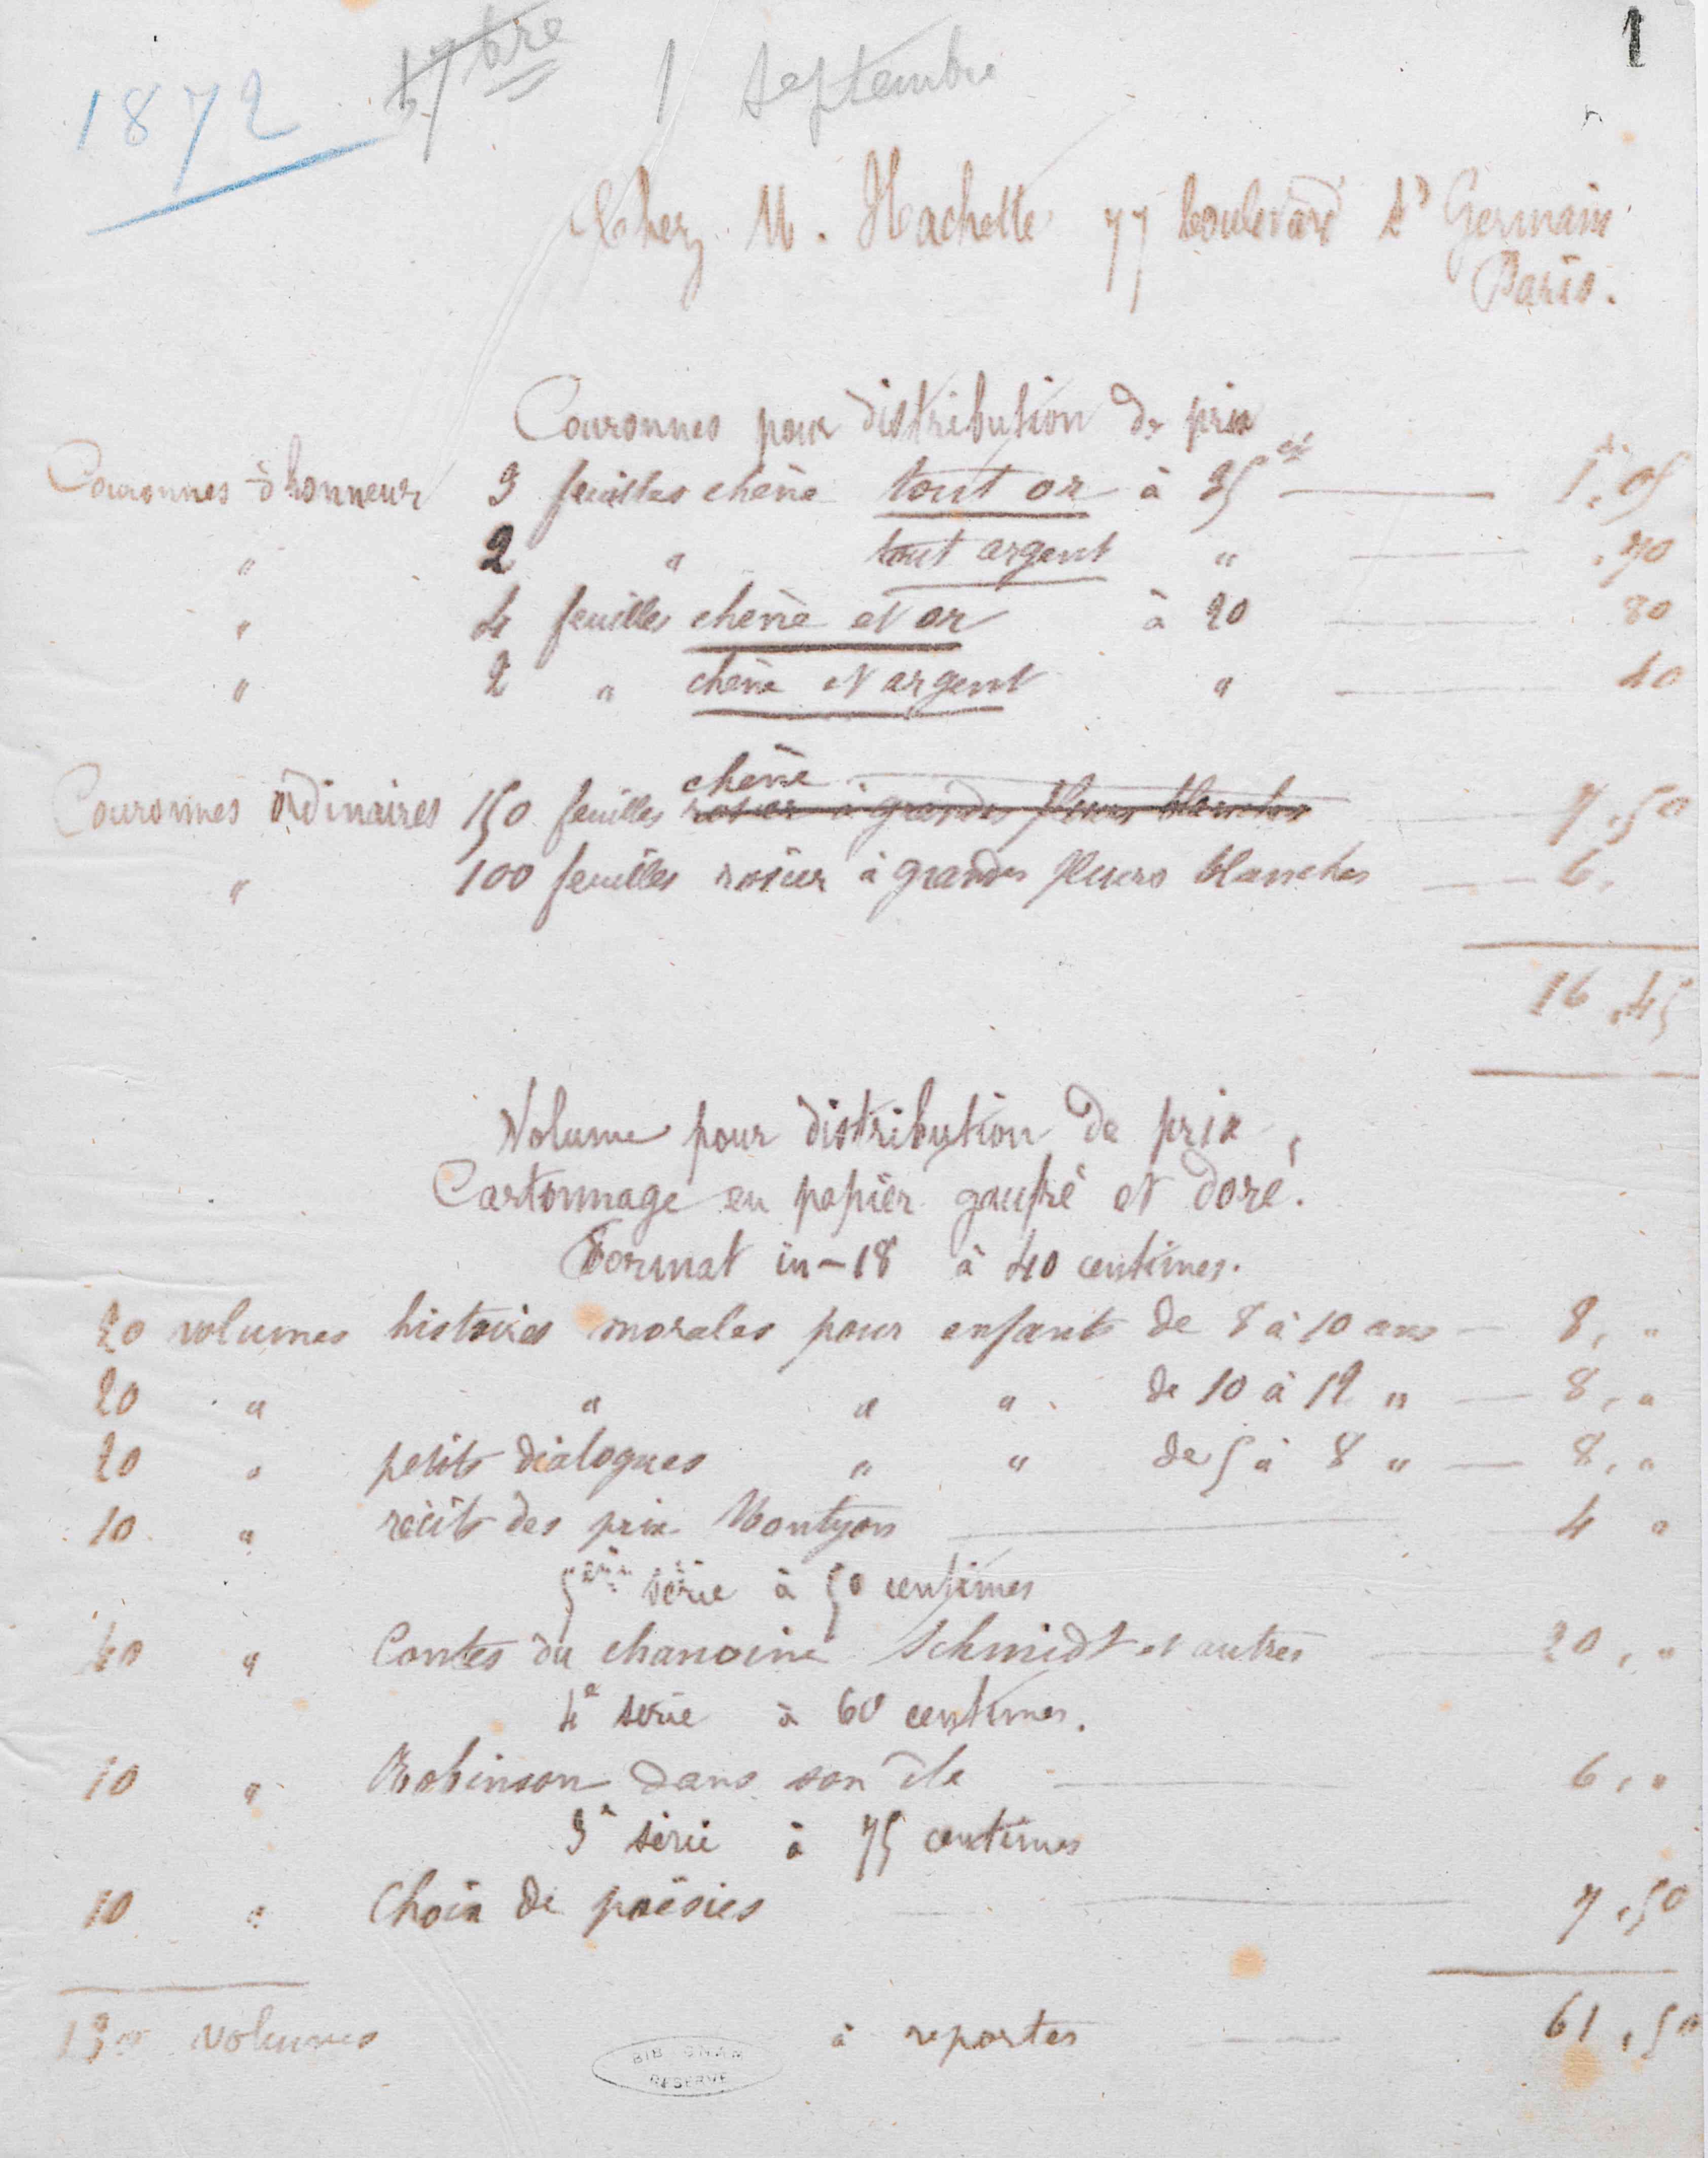 1
1872 7bre 1 septembre
Chez M. Hachette 77 boulevard St Germain
Paris.
Couronnes pour distribution de prix
Couronnes d'honneur 3 feuilles chêne tout or à 35 ct — 1,05
" 2 " tout argent " — ,70
" 4 feuilles chêne et or à 20 — 80
" 2 " chêne et argent " — 40
chêne
Couronnes ordinaires 150 feuilles rosier à grandes fleurs blanches — 7,50
" 100 feuilles rosier à grandes fleurs blanches — 6,
16,45
Volume pour distribution de prix,
Cartonnage en papier gaufré et doré.
Format in-18 à 40 centimes.
20 volumes histoires morales pour enfants de 8 à 10 ans — 8, "
20 " " " " de 10 à 12 " — 8, "
20 " petits dialogues " " de 5 à 8 " — 8, "
10 " récits des prix Montyon — 4 "
5ème série à 50 centimes
40 " Contes du chanoine Schmidt et autres — 20, "
4e série à 60 centimes.
10 " Robinson dans son île — 6, "
3e série à 75 centimes
10 " Choix de poësies — 7,50
130 volumes à reporter — 61,50
BIB CNAM
RESERVE